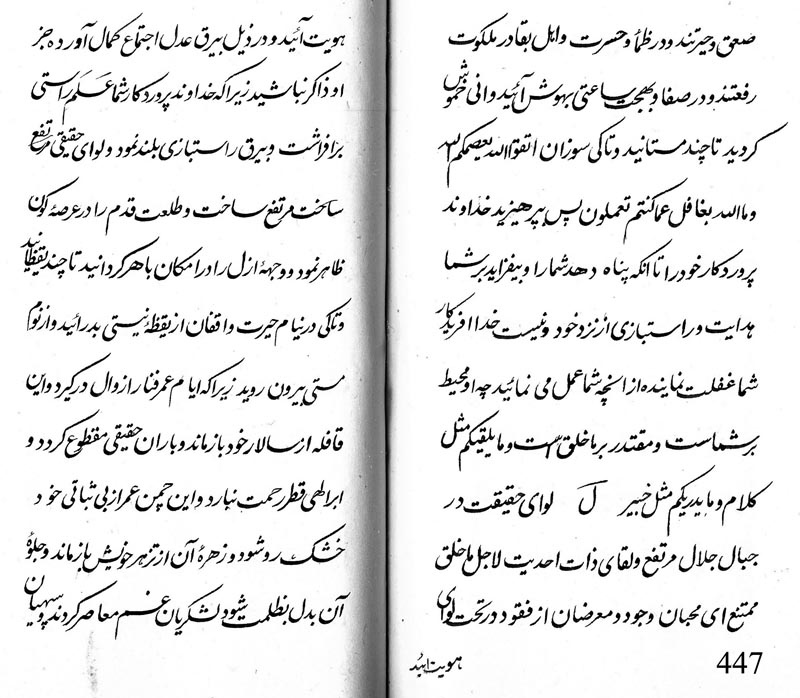 صعق و حیرتند و در ظمأ و حسرت و اهل بقا در ملکوت
رفعتند و در صفا و بهجت ساعتی بهوش آئید و انی خموش
کردید تا چند مستانید و تا کی سوزان اتقوا الله یعصمکم الله
و ما الله بغافل عما کنتم تعملون پس بپرهیزید خداوند
پروردکار خود را تا انکه پناه دهد شما را و بیفزاید بر شما
هدایت و راستبازی از نزد خود و نیست خدا افریدکار
شما غفلت نماینده از انچه شما عمل می نمائید چه او محیط
بر شماست و مقتدر بر ما خلق است و ما یلقیکم مثل
کلام و ما یدریکم مثل خبیر ل لوای حقیقت در
جبال جلال مرتفع و لقای ذات احدیت لاجل ما خلق
ممتنع ای محبان وجود و معرضان از فقود در تحت لوای
هویت ائید
447
هویت آئید و در ذیل بیرق عدل اجتماع کمال آورده جز
او ذاکر نباشید زیرا که خداوند پروردکار شما علم راستی
برافراشت و بیرق راستبازی بلند نمود و لوای حقیقی مرتفع
ساخت مرتفع ساخت و طلعت قدم را در عرصهٔ کون
ظاهر نمود و وجههٔ ازل را در امکان باهر کردانید تا چند یقظانید
و تا کی در نیام حیرت واقفان از یقظهٔ نیستی بدر ائید و از نوم
مستی بیرون روید زیرا که ایام عمر فنا را زوال در کیرد و این
قافله از سالار خود باز ماند و باران حقیقی مقطوع کردد و
ابر الهی قطر رحمت نبارد و این چمن عمر از بی ثباتی خود
خشک رو شود و زهرهٔ آن از تزهر خویش باز ماند و جلوهٔ
آن بدل بظلمت شود لشکریان غم معاصر کردند و سپهیان